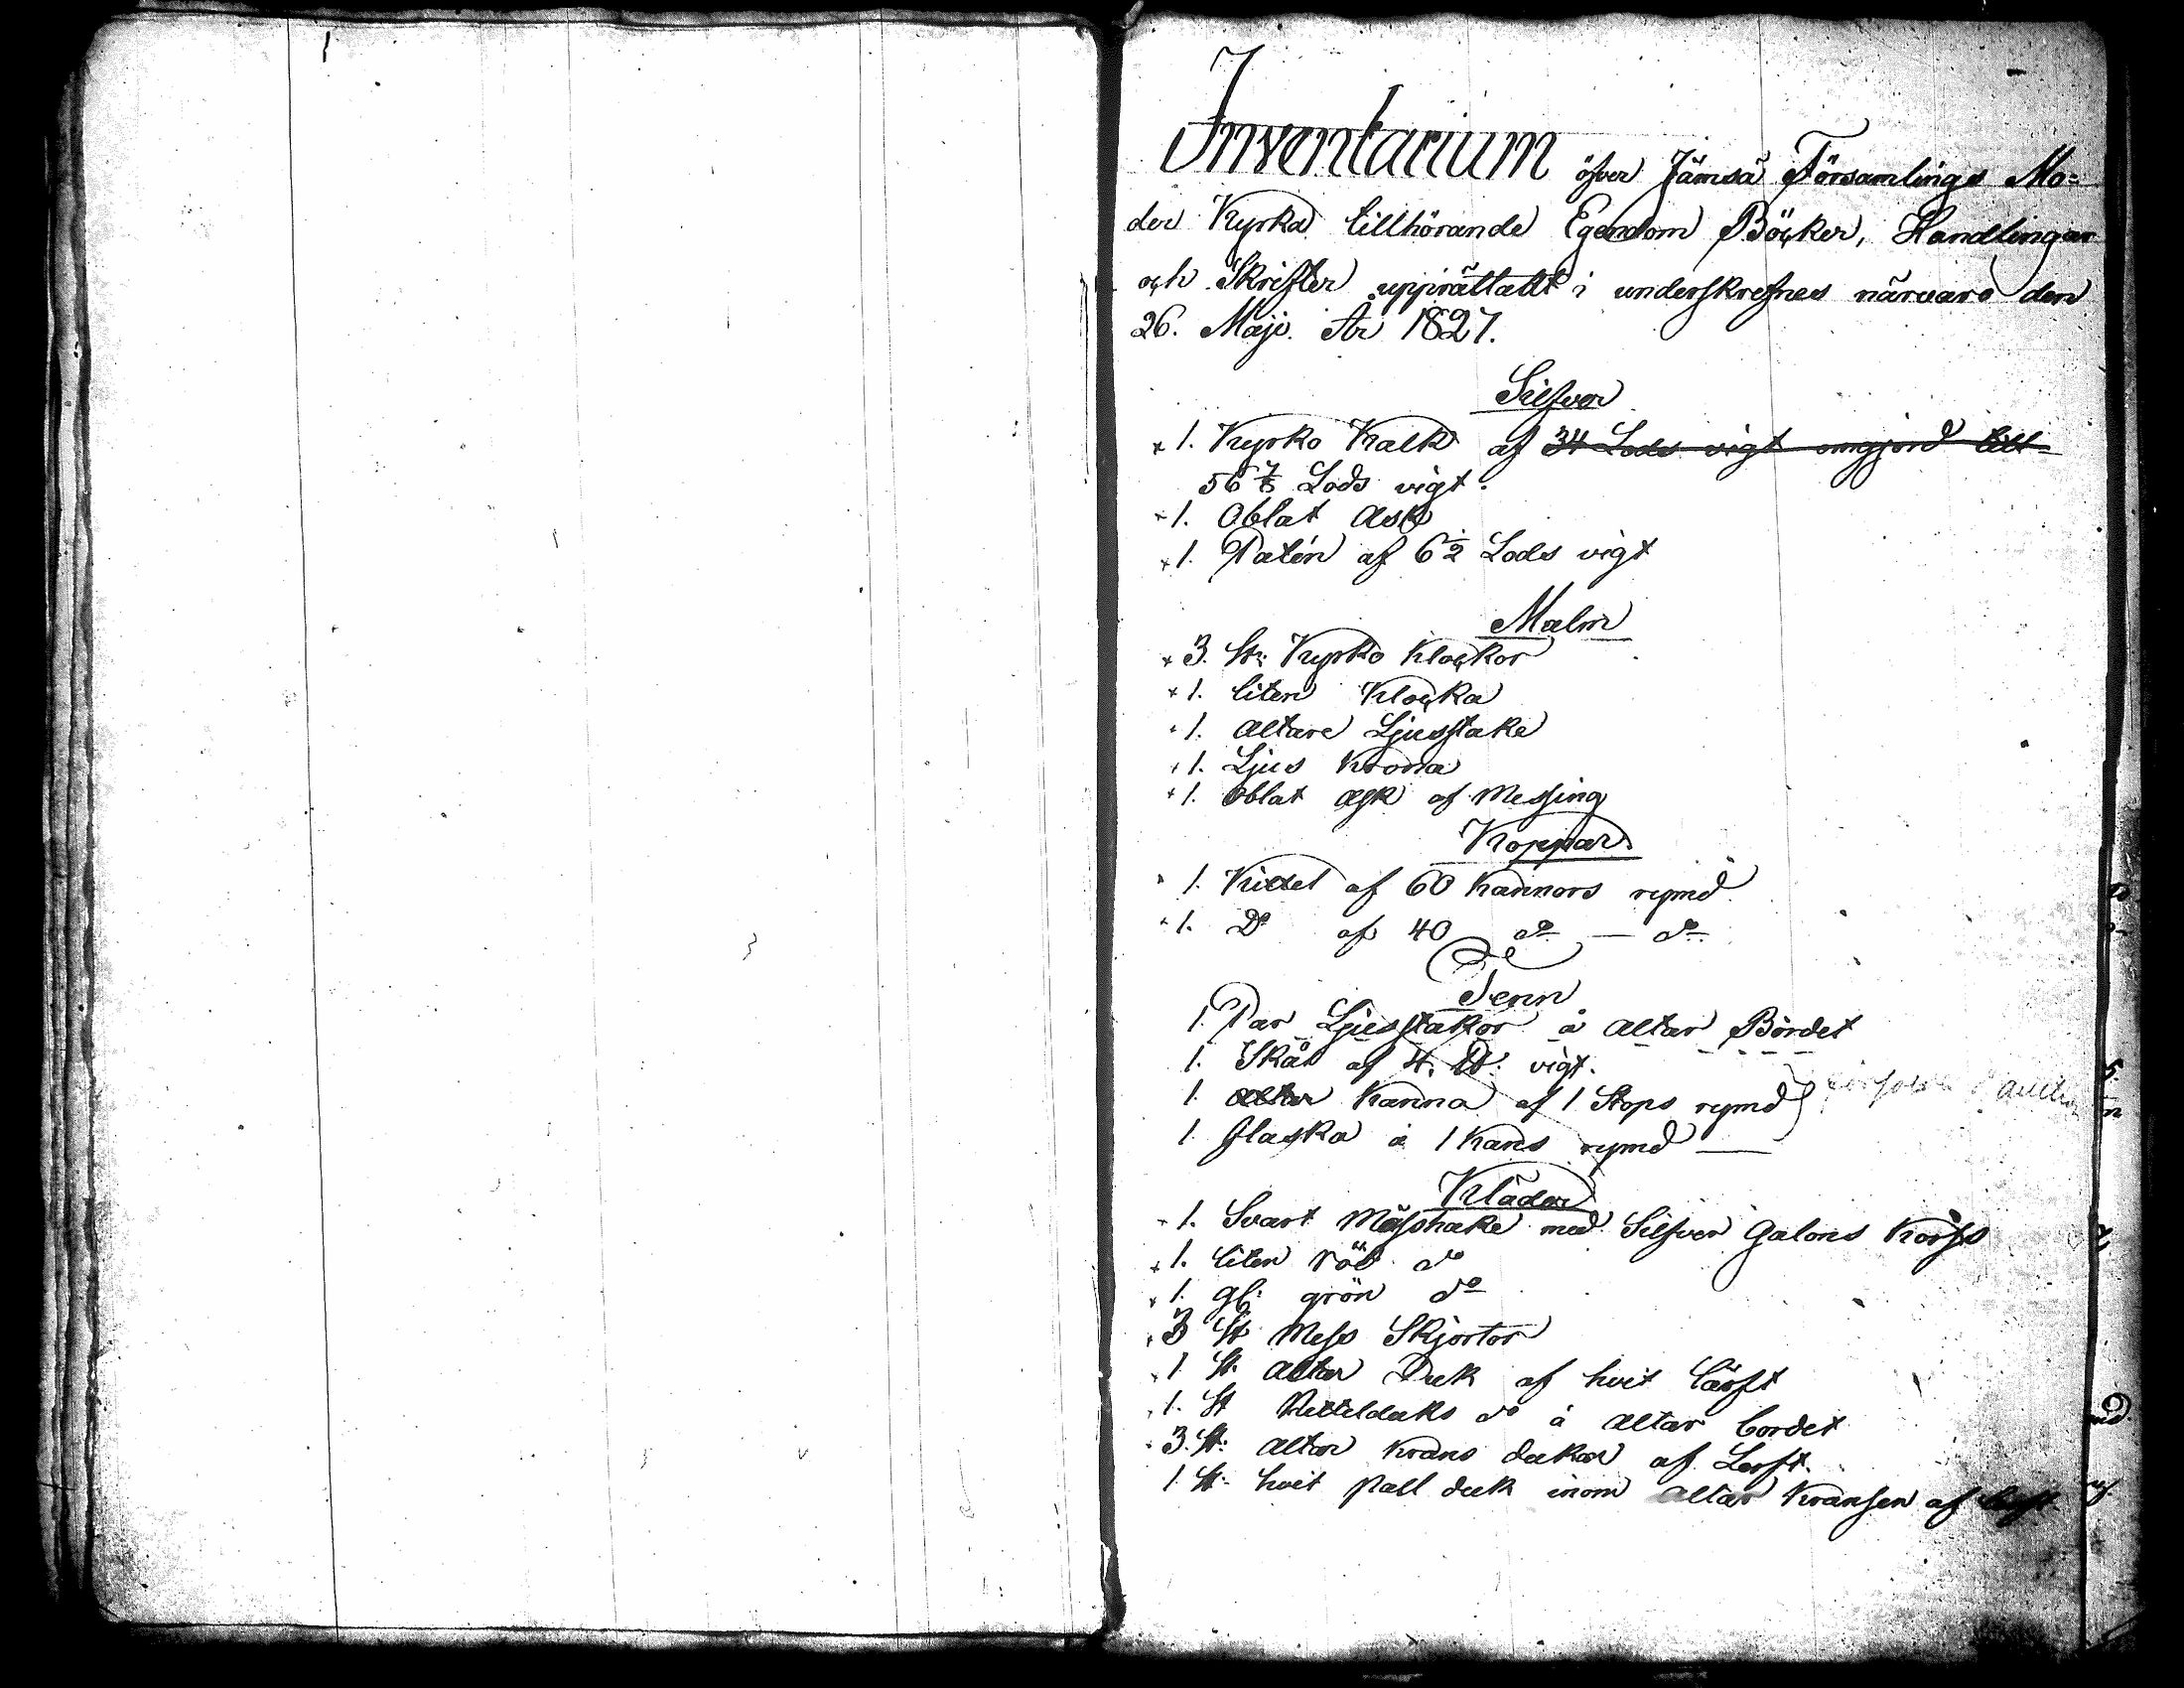 Inventarium öfver Jämsä Församlings Mo=
der Kyrka tillhörande Egendom Böcker, Handlingar
och Skrifter upprättatt i underskrefnes närvaro den
26. Maji. År 1827.
Silfver
× 1. Kyrko Kalk af 34 Lods vigt omgjord till
56 7/8 Lods vigt.
× 1. Oblat Ask
× 1. Patén af 6 1/2 Lods vigt
Malm
× 3. St: Kyrko Klockor
× 1. liten Klocka
× 1. Altare Ljusstake
× 1. Ljus Krona
× 1. Oblat ask af Messing
Koppar
× 1. Kittel af 60 Kannors rymd
× 1. Do af 40 do — do
Tenn
1. Par Ljusstakor å Altar Bordet
1. Skål af 4. ℔: vigt.
1. Altar Kanna af 1 Stops rymd
1. flaska à 1 Kans rymd —
Kläder
× 1. Svart Mässhake med Silfver Galons Korss
× 1. liten röd do
× 1. gl: grön do
× 3 St Mess Skjortor
× 1 St. Altar Duk af hvit lärft
× 1. St Nettelduks do å Altar bordet
× 3. St: Altar Krans dukar af Lerft.
1. St: hvit Pall duk inom Altar Kransen af lerft